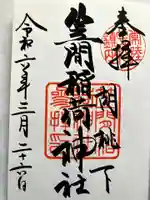 奉拝
胡桃下
笠間稲荷神社
令和六年三月二十六日